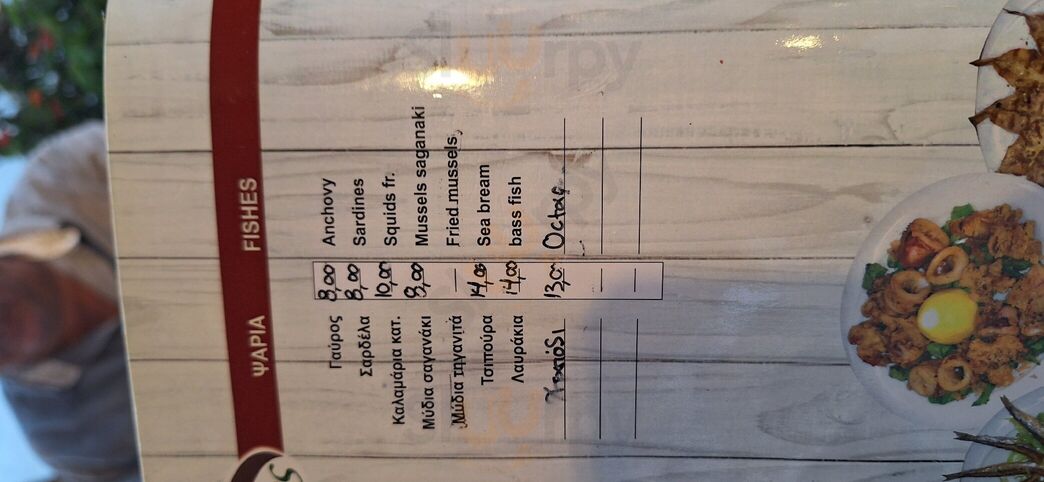 ΨΑΡΙΑ FISHES
Γαύρος 8,00 Anchovy
Σαρδέλα 8,00 Sardines
Καλαμάρια κατ. 10,00 Squids fr.
Μύδια σαγανάκι 9,00 Mussels saganaki
Μύδια τηγανιτά — Fried mussels
Τσιπούρα 14,00 Sea bream
Λαυράκια 14,00 bass fish
13,00 Octap
—
—